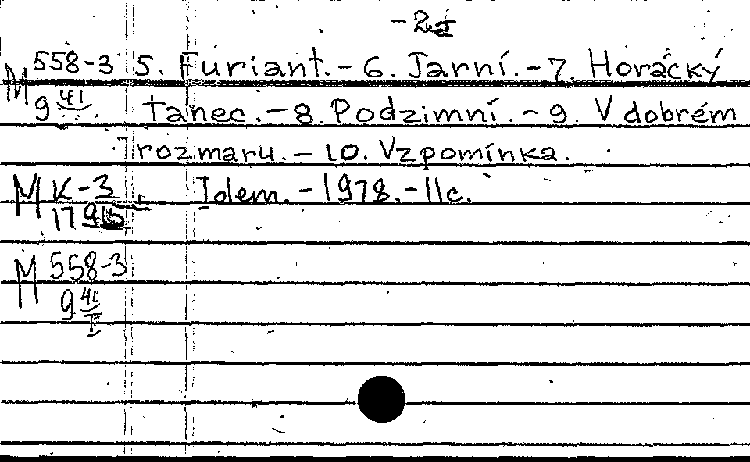 -2-
M 558-3 5. Furiant.-6. Jarní.-7. Horácký
9 41 tanec.-8. Podzimní.-9. V dobrém
rozmaru.-10. Vzpomínka.
M K-3 Idem.-1978.-11c.
17
M 558-3
9 41
I